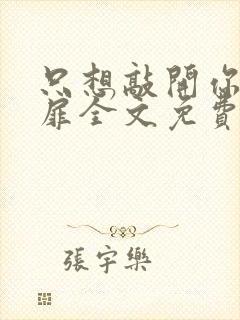 只想敲開你
扉全文免費
張宇樂